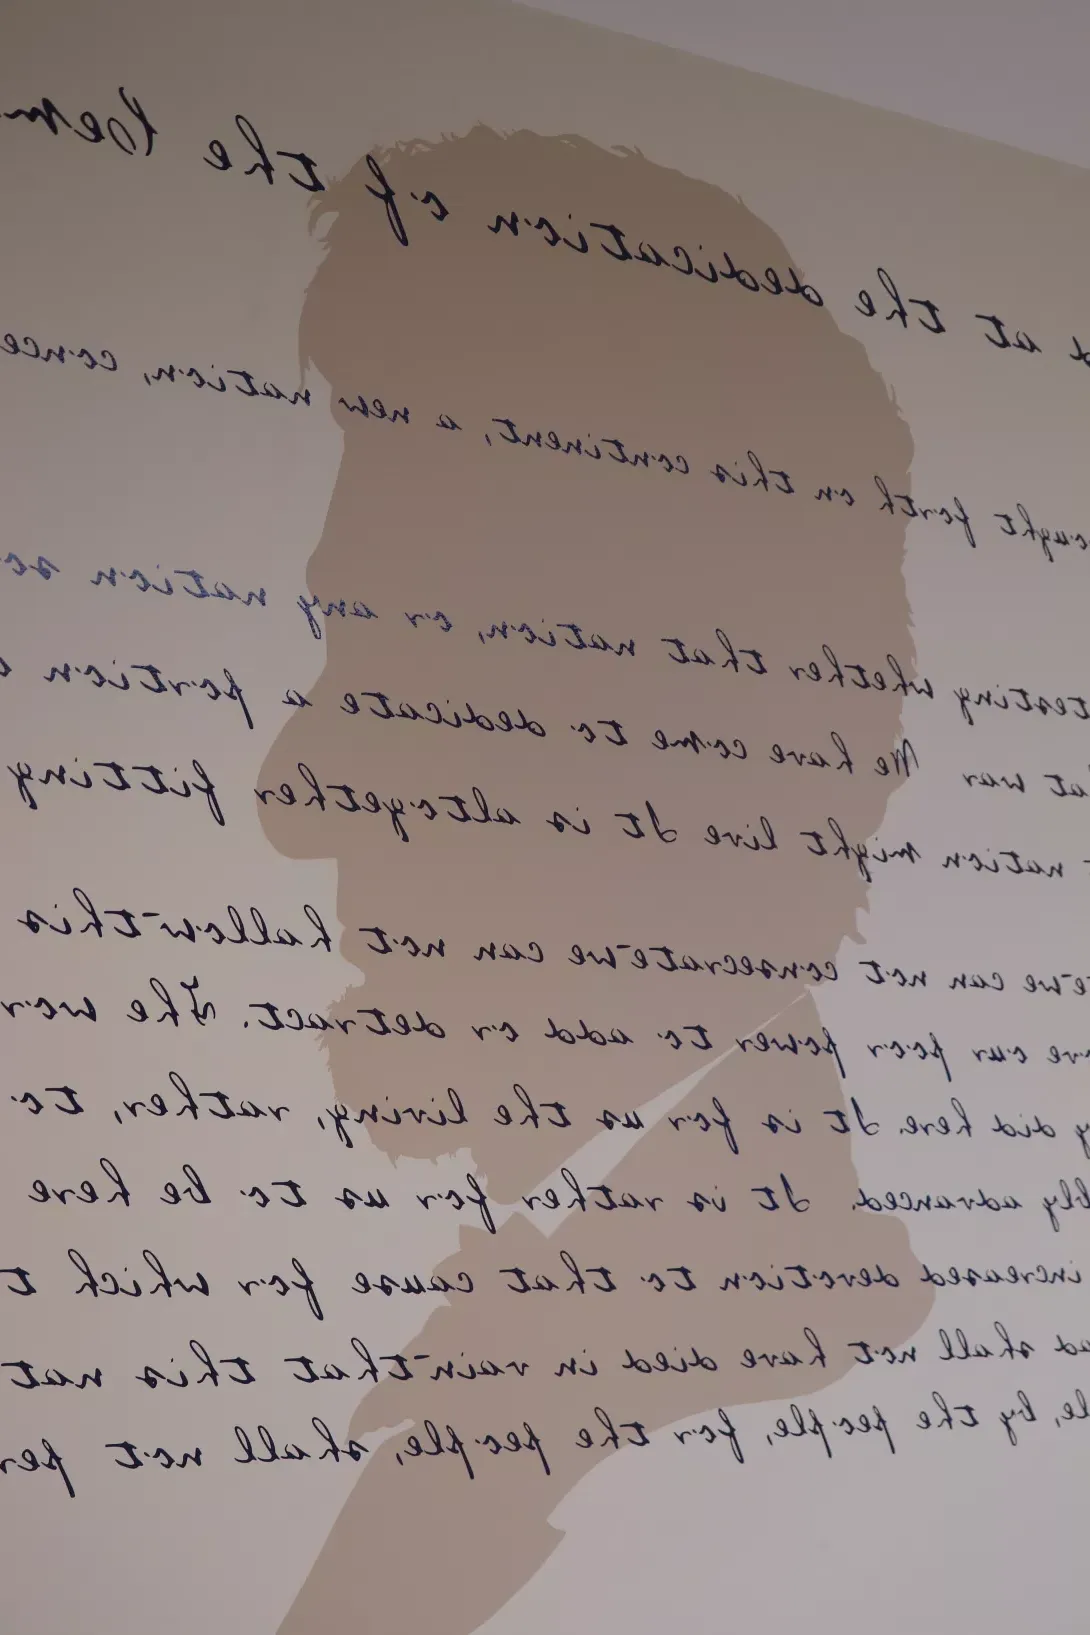 at the dedication of the
ought forth on this continent, a new nation, conce
testing whether that nation, or any nation so
at war We have come to dedicate a portion
nation might live It is altogether fitting
we can not consecrate–we can not hallow–this
our poor power to add or detract. The wor
y did here. It is for us the living, rather, to
bly advanced. It is rather for us to be here
increased devotion to that cause for which t
ad shall not have died in vain–that this nat
le, by the people, for the people, shall not per